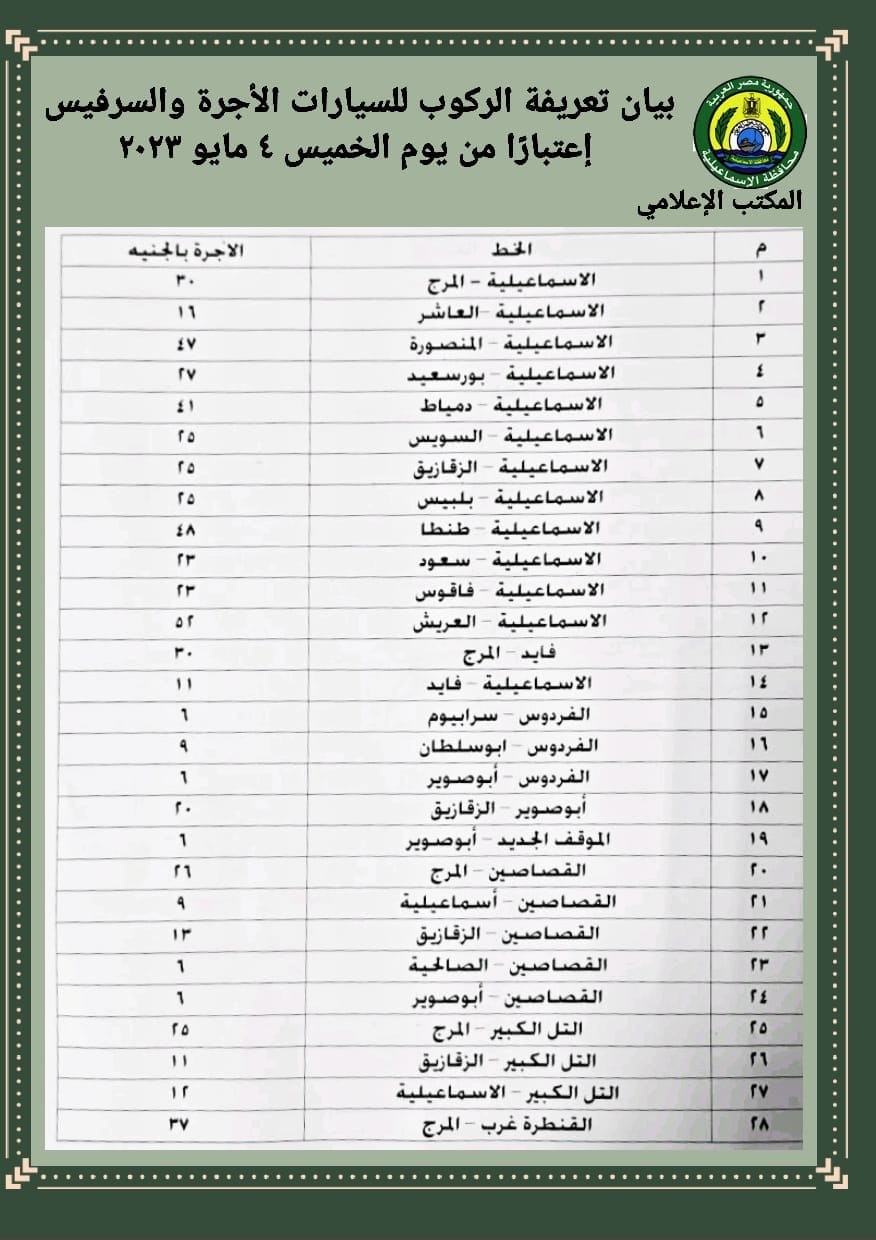 بيان تعريفة الركوب للسيارات الأجرة والسرفيس
إعتبارًا من يوم الخميس ٤ مايو ٢٠٢٣
جمهورية مصر العربية
محافظة الإسماعيلية
المكتب الإعلامي
م الخط الاجرة بالجنيه
١ الاسماعيلية – المرج ٣٠
٢ الاسماعيلية –العاشر ١٦
٣ الاسماعيلية – المنصورة ٤٧
٤ الاسماعيلية – بورسعيد ٢٧
٥ الاسماعيلية – دمياط ٤١
٦ الاسماعيلية – السويس ٢٥
٧ الاسماعيلية – الزقازيق ٢٥
٨ الاسماعيلية – بلبيس ٢٥
٩ الاسماعيلية – طنطا ٤٨
١٠ الاسماعيلية – سعود ٢٣
١١ الاسماعيلية – فاقوس ٢٣
١٢ الاسماعيلية – العريش ٥٢
١٣ فايد – المرج ٣٠
١٤ الاسماعيلية – فايد ١١
١٥ الفردوس – سرابيوم ٦
١٦ الفردوس – ابوسلطان ٩
١٧ الفردوس – أبوصوير ٦
١٨ أبوصوير – الزقازيق ٢٠
١٩ الموقف الجديد – أبوصوير ٦
٢٠ القصاصين – المرج ٢٦
٢١ القصاصين – أسماعيلية ٩
٢٢ القصاصين – الزقازيق ١٣
٢٣ القصاصين – الصالحية ٦
٢٤ القصاصين – أبوصوير ٦
٢٥ التل الكبير – المرج ٢٥
٢٦ التل الكبير – الزقازيق ١١
٢٧ التل الكبير – الاسماعيلية ١٢
٢٨ القنطرة غرب – المرج ٣٧